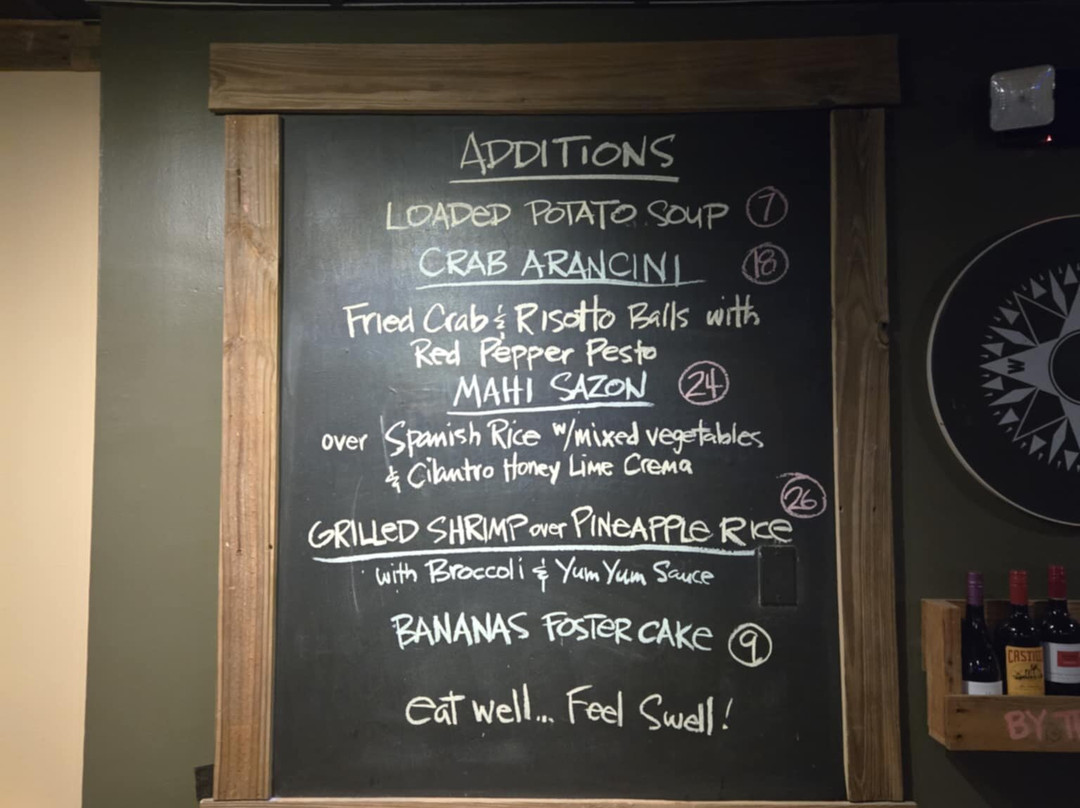 ADDITIONS
LOADED POTATO SOUP 7
CRAB ARANCINI 18
Fried Crab & Risotto Balls with
Red Pepper Pesto
MAHI SAZON 24
over Spanish Rice w/mixed vegetables
& Cilantro Honey Lime Crema
26
GRILLED SHRIMP over PINEAPPLE RICE
with Broccoli & Yum Yum Sauce
BANANAS FOSTER CAKE 9
eat well... Feel Swell!
W
BY